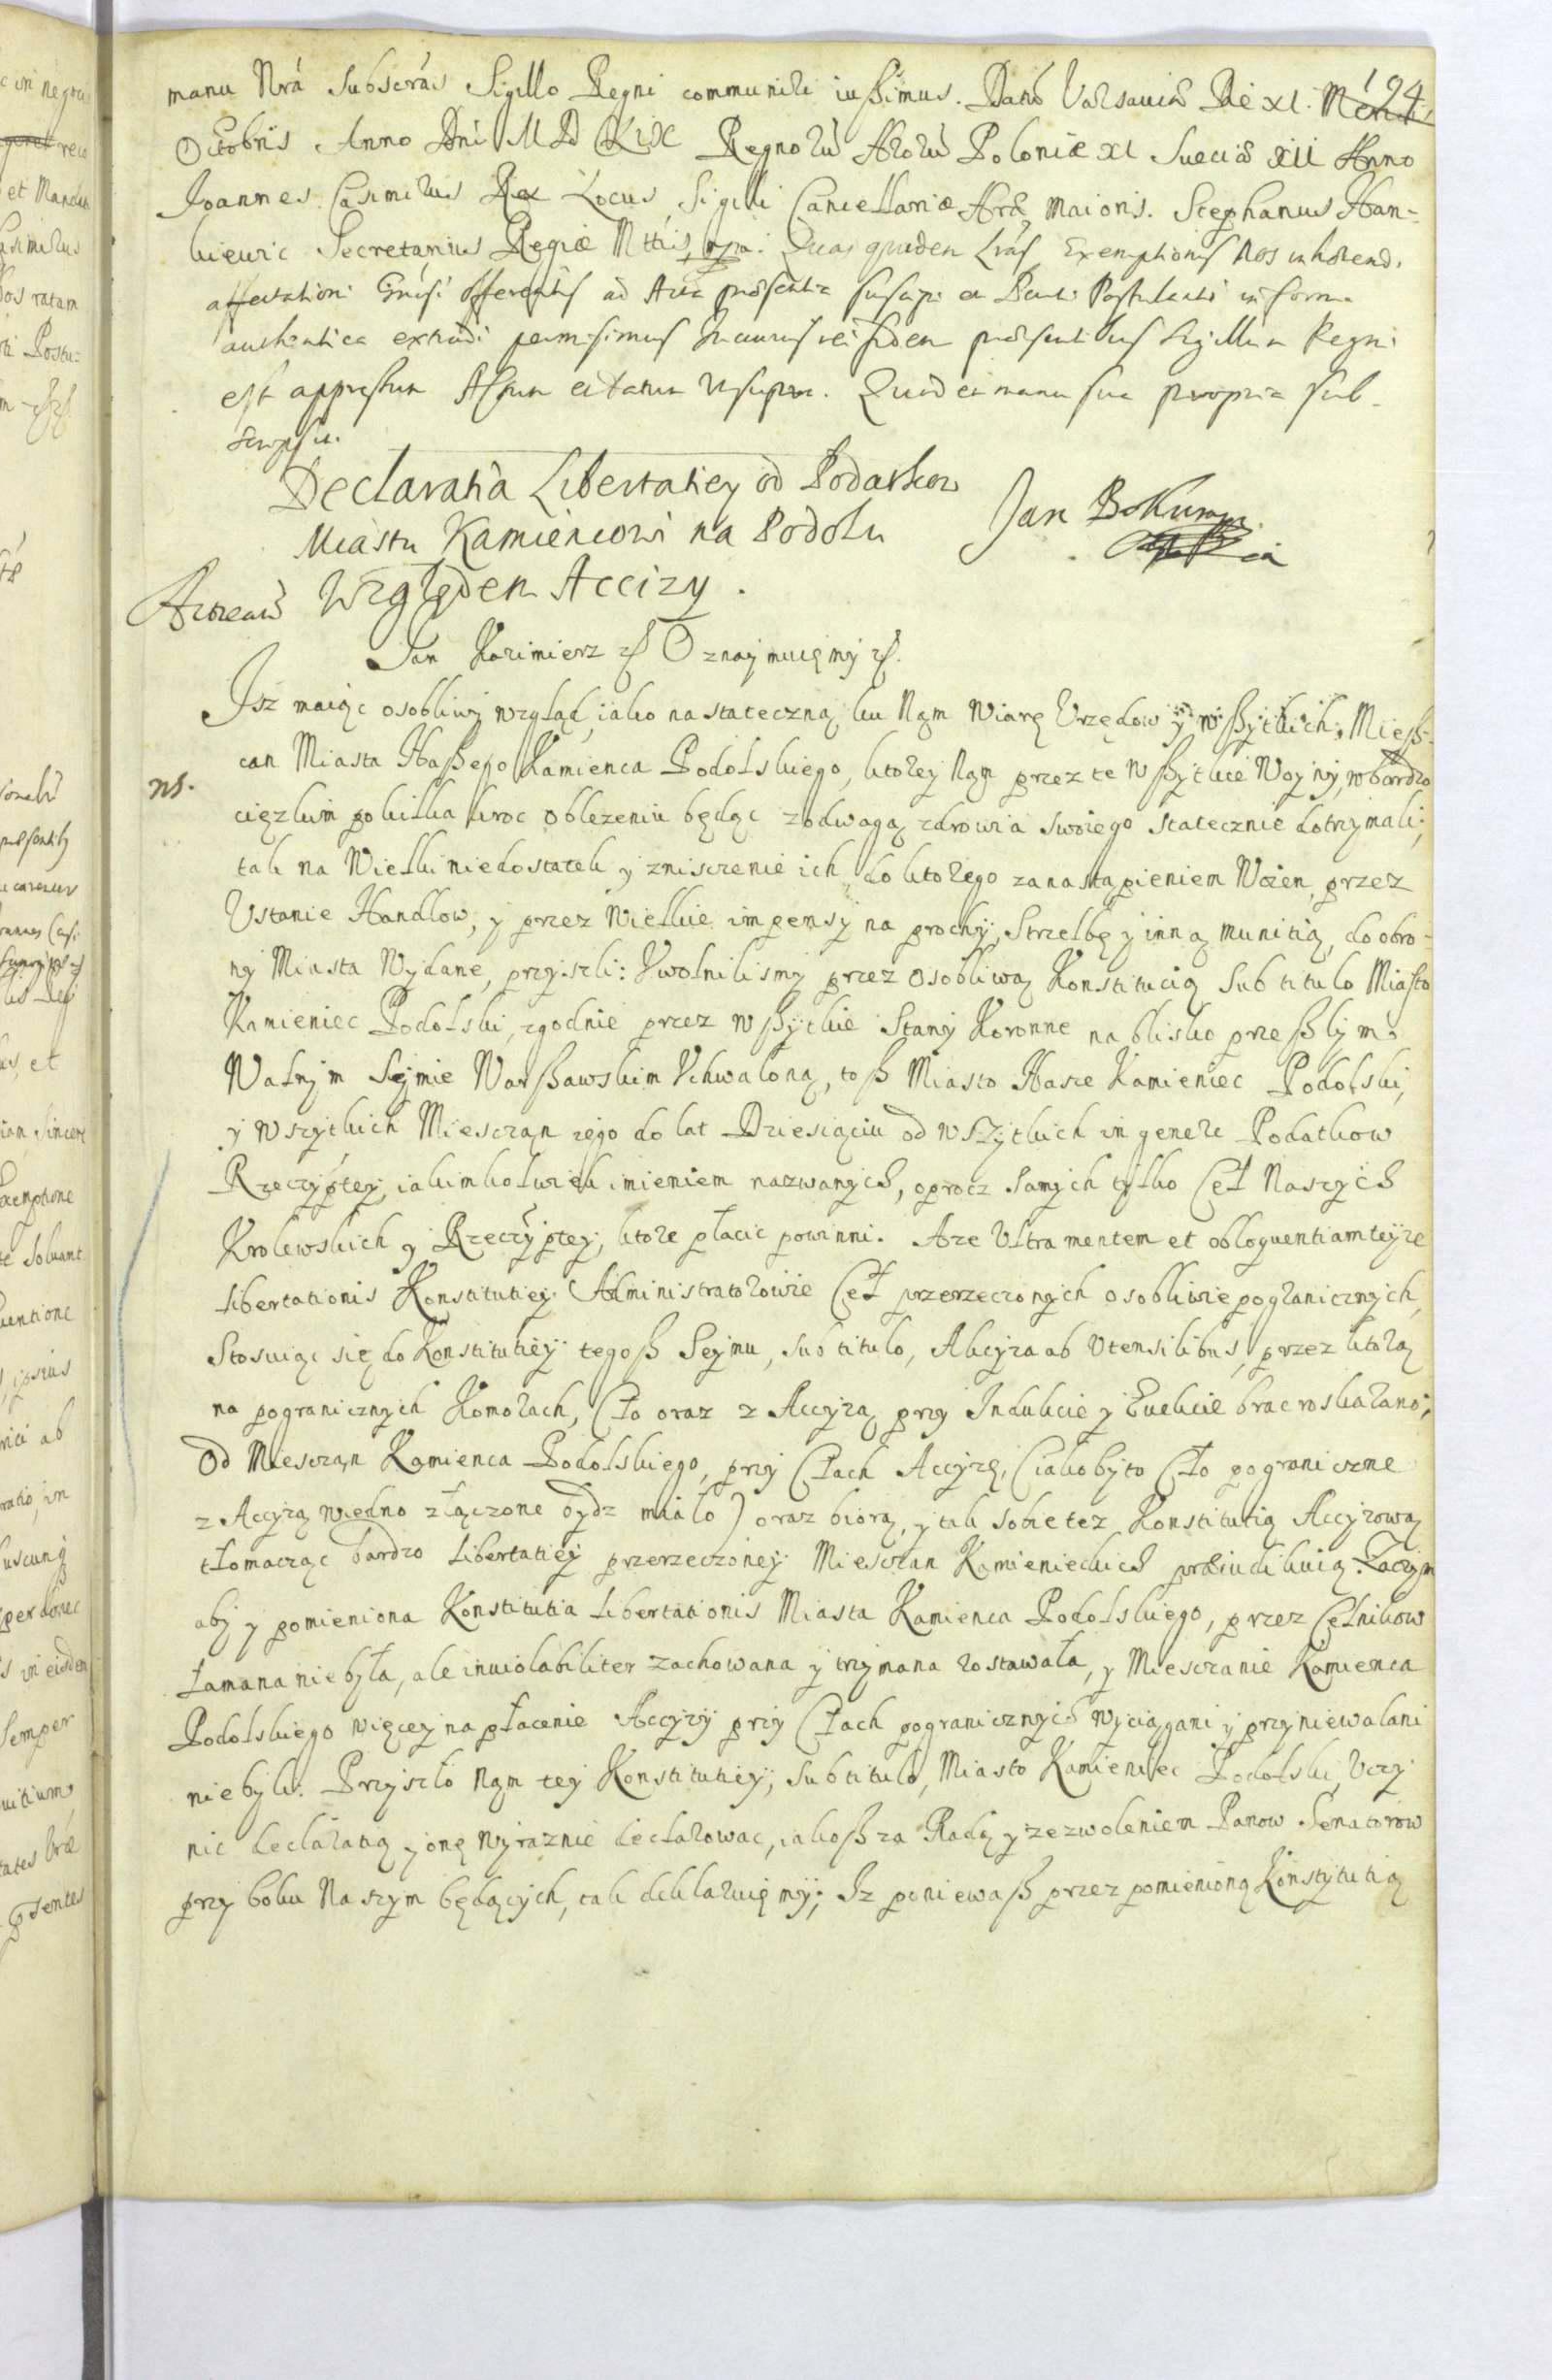 194
manu Nrá Subscrás Sigillo Regni communiri iussimus. Datũ Varsaviæ Die XI. Mensis
Octobris Anno Dni M D C LIX Regnorũ Nrorũ Poloniæ XI Sueciæ XII Anno
Joannes Casimirus Rex Locus Sigilli Cancellariæ Nræ Maioris. Stephanus Han-
kiewic Secretarius Regiæ Mttis, mpa. Quas quidem Lrás Exemptionis Nos inhærendo
affectationi offerentis ad Acta præsentia suscipi et Parti Postulanti in forma
authentica extradi permisimus In cuius rei fidem præsentibus Sigillum Regni
est appressum Actum et Datum ut supra. Quod et manu sua propria sub-
scripsit.
Declaratia Libertatiey od Podatkow
Miastu Kamiencowi na Podolu
Jan
Względem Accizy.
Jan Kazimierz Oznaymuięmy
Jsz maiąc osobliwy wzgląd, iako na stateczną ku Nąm Wiarę Vrzędow y wßytkich, Mieß-
can Miasta Naßego Kamienca Podolskiego, ktorey Nąm przez te Wßytkie Woyny, w bardzo
cięzkim po kilka kroc oblezeniu będąc z odwagą zdrowia swoiego statecznie dotrzymali;
tak na Wielki niedostatek y zniszczenie ich, do ktorego za nastąpieniem Woien, przez
Vstanie Handlow, y przez Wielkie impensy na prochy, Strzelbę y inną munitią, do obro-
ny Miasta Wydane, przyszli: Vwolnilismy przez osobliwą Konstitucią sub titulo Miasto
Kamieniec Podolski, zgodnie przez wßytkie Stany Koronne na blisko przeßłym
Walnym Sejmie Warßawskim Vchwaloną, toß Miasto Nasze Kamieniec Podolski,
y wszytkich Miesczan iego do lat Dziesiąciu od wszytkich in genere Podatkow
Rzeczyptey, iakimkolwiek imieniem nazwanych, oprocz samych tylko Ceł Naszych
Krolewskich y Rzeczyptey, ktore płacic powinni. Aze Vltra mentem et obloquentiam teyze
libertationis Konstitutiey Administratorowie Ceł przerzeczonych osobliwie pogranicznych,
Stosuiąc się do Konstitutiey tegoß Seymu, sub titulo, Akcyza ab Vtensilibus, przez ktorą
na pogranicznych Komorach, Cło oraz z Accyzą przy Indukcie y Evekcie brac roskazano;
Od Miesczan Kamienca Podolskiego, przy Cłach Accyzę, (iakoby to Cło pograniczne
z Accyzą wiedno złączone bydz miało) oraz biorą, y tak sobie tez Konstitutią Accyzową
tłomacząc bardzo Libertatiey przerzeczoney Miesczan Kamienieckich præiudikuią. Zaczym
aby y pomieniona Konstitutia libertationis Miasta Kamienca Podolskiego, przez Celnikow
łamana nie była, ale inviolabiliter zachowana y trzymana zostawała, y Miesczanie Kamienca
Podolskiego więcey na płacenie Accyzy przy Cłach pogranicznych wyciągani y przyniewalani
nie byli. Przyszło Nąm tey Konstitutiey, sub titulo, Miasto Kamieniec Podolski, Vczy-
nic deklaratią y onę wyraznie declarowac, iakoß za Radą y zezwoleniem Panow Senatorow
przy boku Naszym będących, tak deklaruięmy; Iz poniewaß przez pomienioną Konstytutią